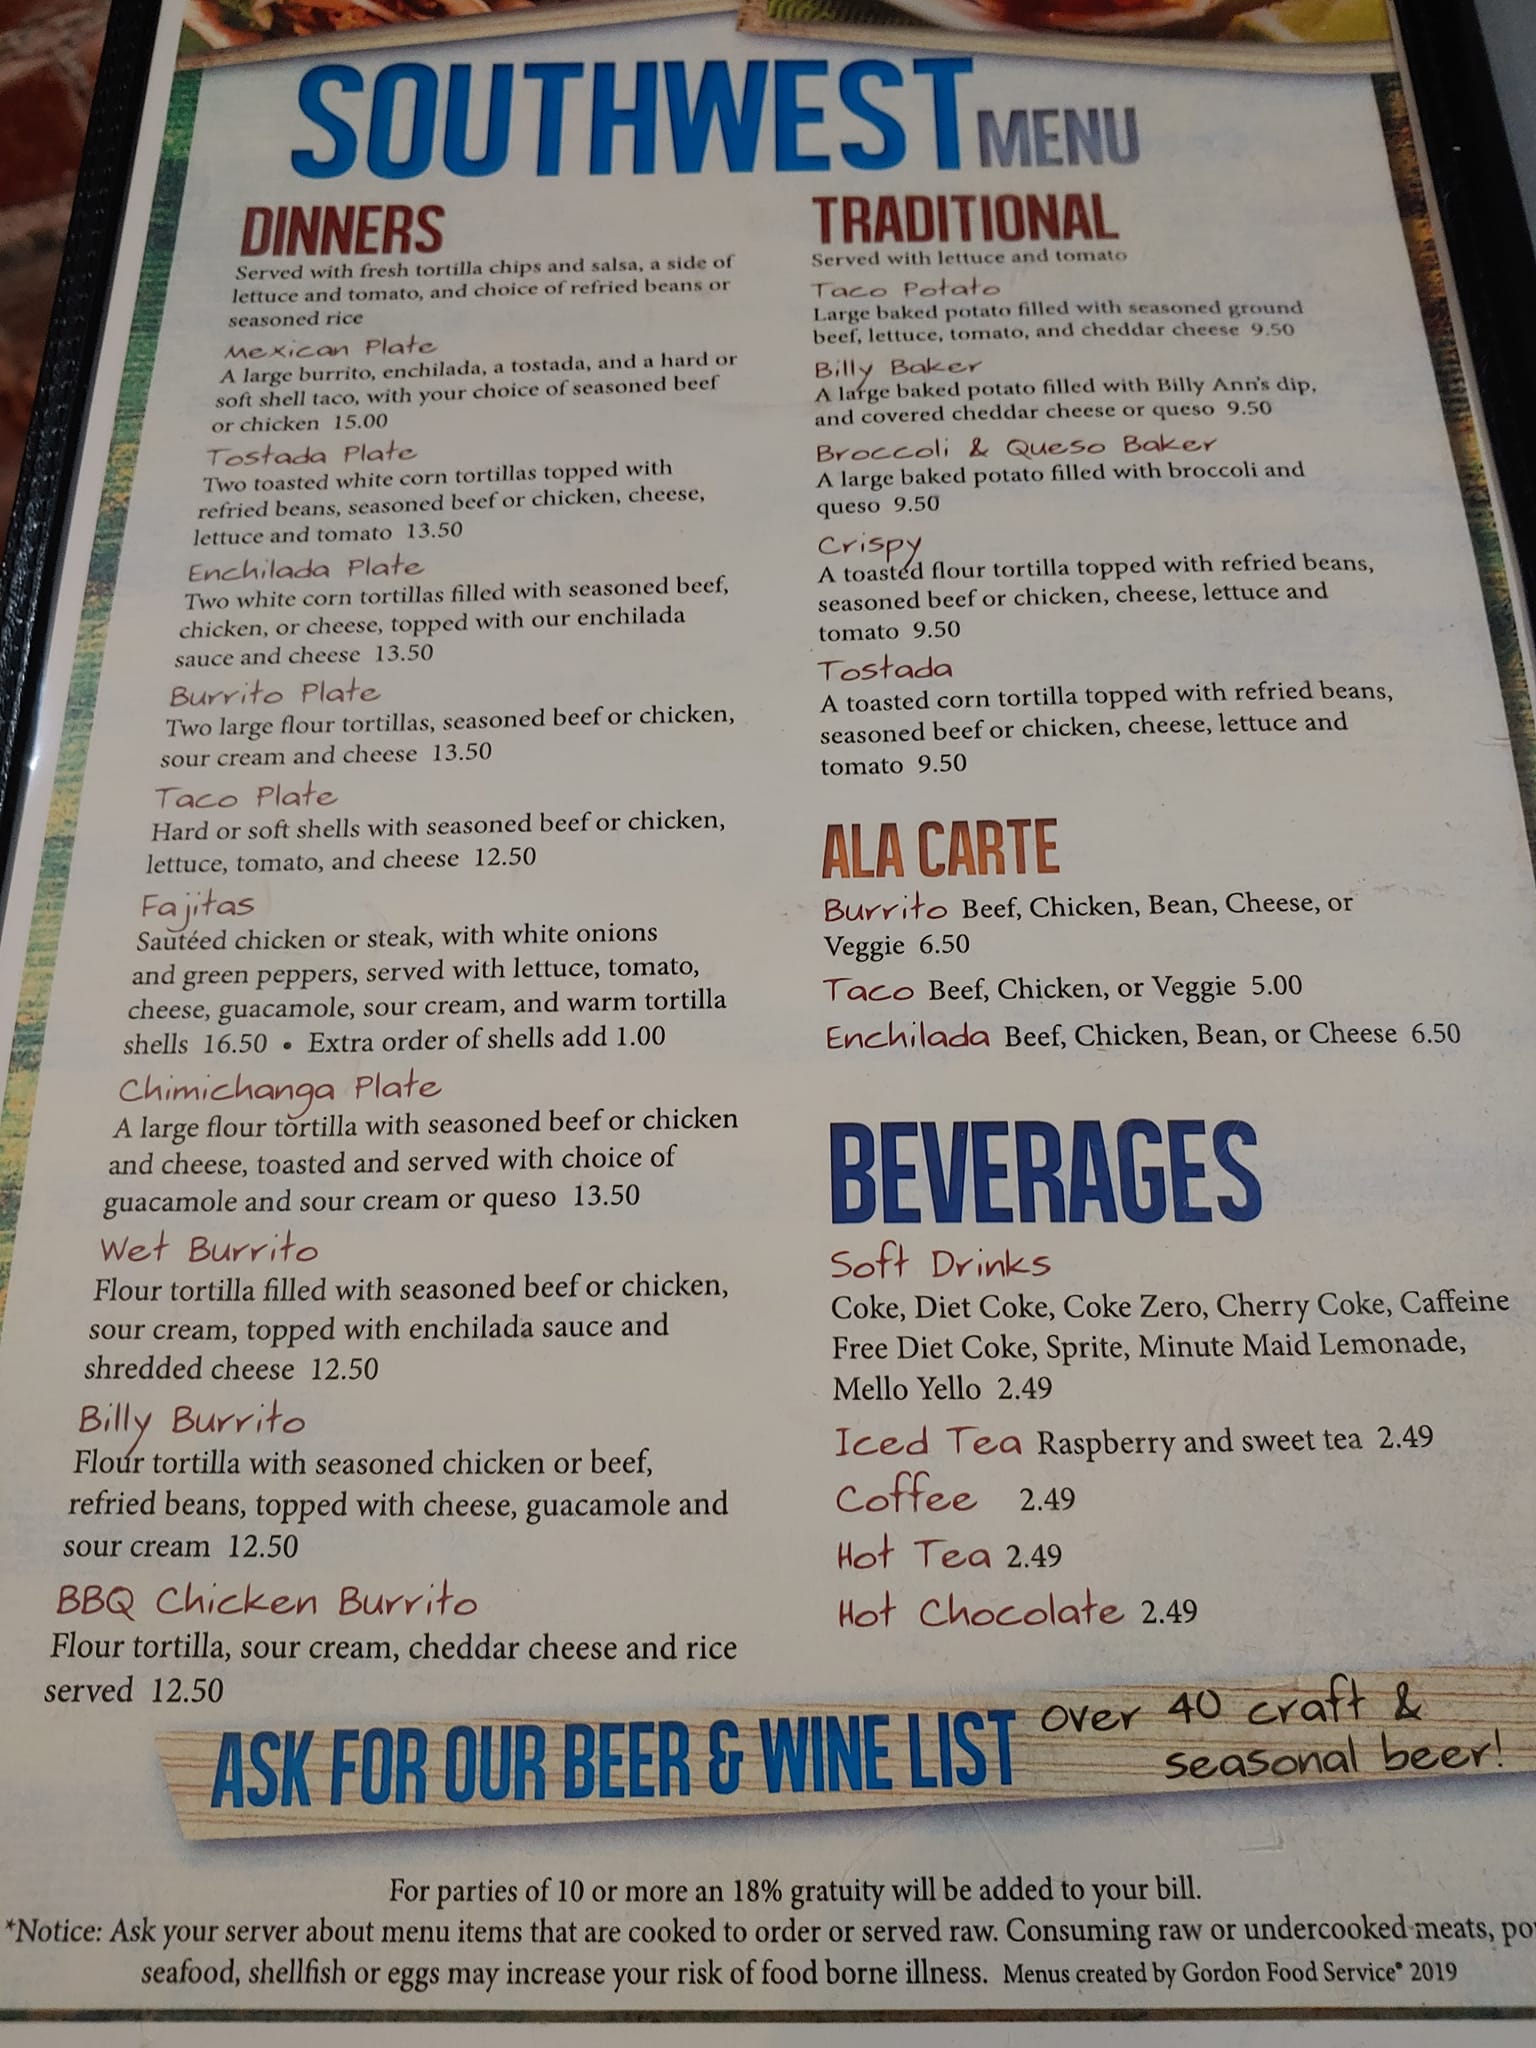 SOUTHWEST MENU
DINNERS
Served with fresh tortilla chips and salsa, a side of
lettuce and tomato, and choice of refried beans or
seasoned rice
Mexican Plate
A large burrito, enchilada, a tostada, and a hard or
soft shell taco, with your choice of seasoned beef
or chicken 15.00
Tostada Plate
Two toasted white corn tortillas topped with
refried beans, seasoned beef or chicken, cheese,
lettuce and tomato 13.50
Enchilada Plate
Two white corn tortillas filled with seasoned beef,
chicken, or cheese, topped with our enchilada
sauce and cheese 13.50
Burrito Plate
Two large flour tortillas, seasoned beef or chicken,
sour cream and cheese 13.50
Taco Plate
Hard or soft shells with seasoned beef or chicken,
lettuce, tomato, and cheese 12.50
Fajitas
Sautéed chicken or steak, with white onions
and green peppers, served with lettuce, tomato,
cheese, guacamole, sour cream, and warm tortilla
shells 16.50 • Extra order of shells add 1.00
Chimichanga Plate
A large flour tortilla with seasoned beef or chicken
and cheese, toasted and served with choice of
guacamole and sour cream or queso 13.50
Wet Burrito
Flour tortilla filled with seasoned beef or chicken,
sour cream, topped with enchilada sauce and
shredded cheese 12.50
Billy Burrito
Flour tortilla with seasoned chicken or beef,
refried beans, topped with cheese, guacamole and
sour cream 12.50
BBQ Chicken Burrito
Flour tortilla, sour cream, cheddar cheese and rice
served 12.50
TRADITIONAL
Served with lettuce and tomato
Taco Potato
Large baked potato filled with seasoned ground
beef, lettuce, tomato, and cheddar cheese 9.50
Billy Baker
A large baked potato filled with Billy Ann's dip,
and covered cheddar cheese or queso 9.50
Broccoli & Queso Baker
A large baked potato filled with broccoli and
queso 9.50
Crispy
A toasted flour tortilla topped with refried beans,
seasoned beef or chicken, cheese, lettuce and
tomato 9.50
Tostada
A toasted corn tortilla topped with refried beans,
seasoned beef or chicken, cheese, lettuce and
tomato 9.50
ALA CARTE
Burrito Beef, Chicken, Bean, Cheese, or
Veggie 6.50
Taco Beef, Chicken, or Veggie 5.00
Enchilada Beef, Chicken, Bean, or Cheese 6.50
BEVERAGES
Soft Drinks
Coke, Diet Coke, Coke Zero, Cherry Coke, Caffeine
Free Diet Coke, Sprite, Minute Maid Lemonade,
Mello Yello 2.49
Iced Tea Raspberry and sweet tea 2.49
Coffee 2.49
Hot Tea 2.49
Hot Chocolate 2.49
ASK FOR OUR BEER & WINE LIST
over 40 craft &
seasonal beer!
For parties of 10 or more an 18% gratuity will be added to your bill.
*Notice: Ask your server about menu items that are cooked to order or served raw. Consuming raw or undercooked meats,
seafood, shellfish or eggs may increase your risk of food borne illness. Menus created by Gordon Food Service® 2019